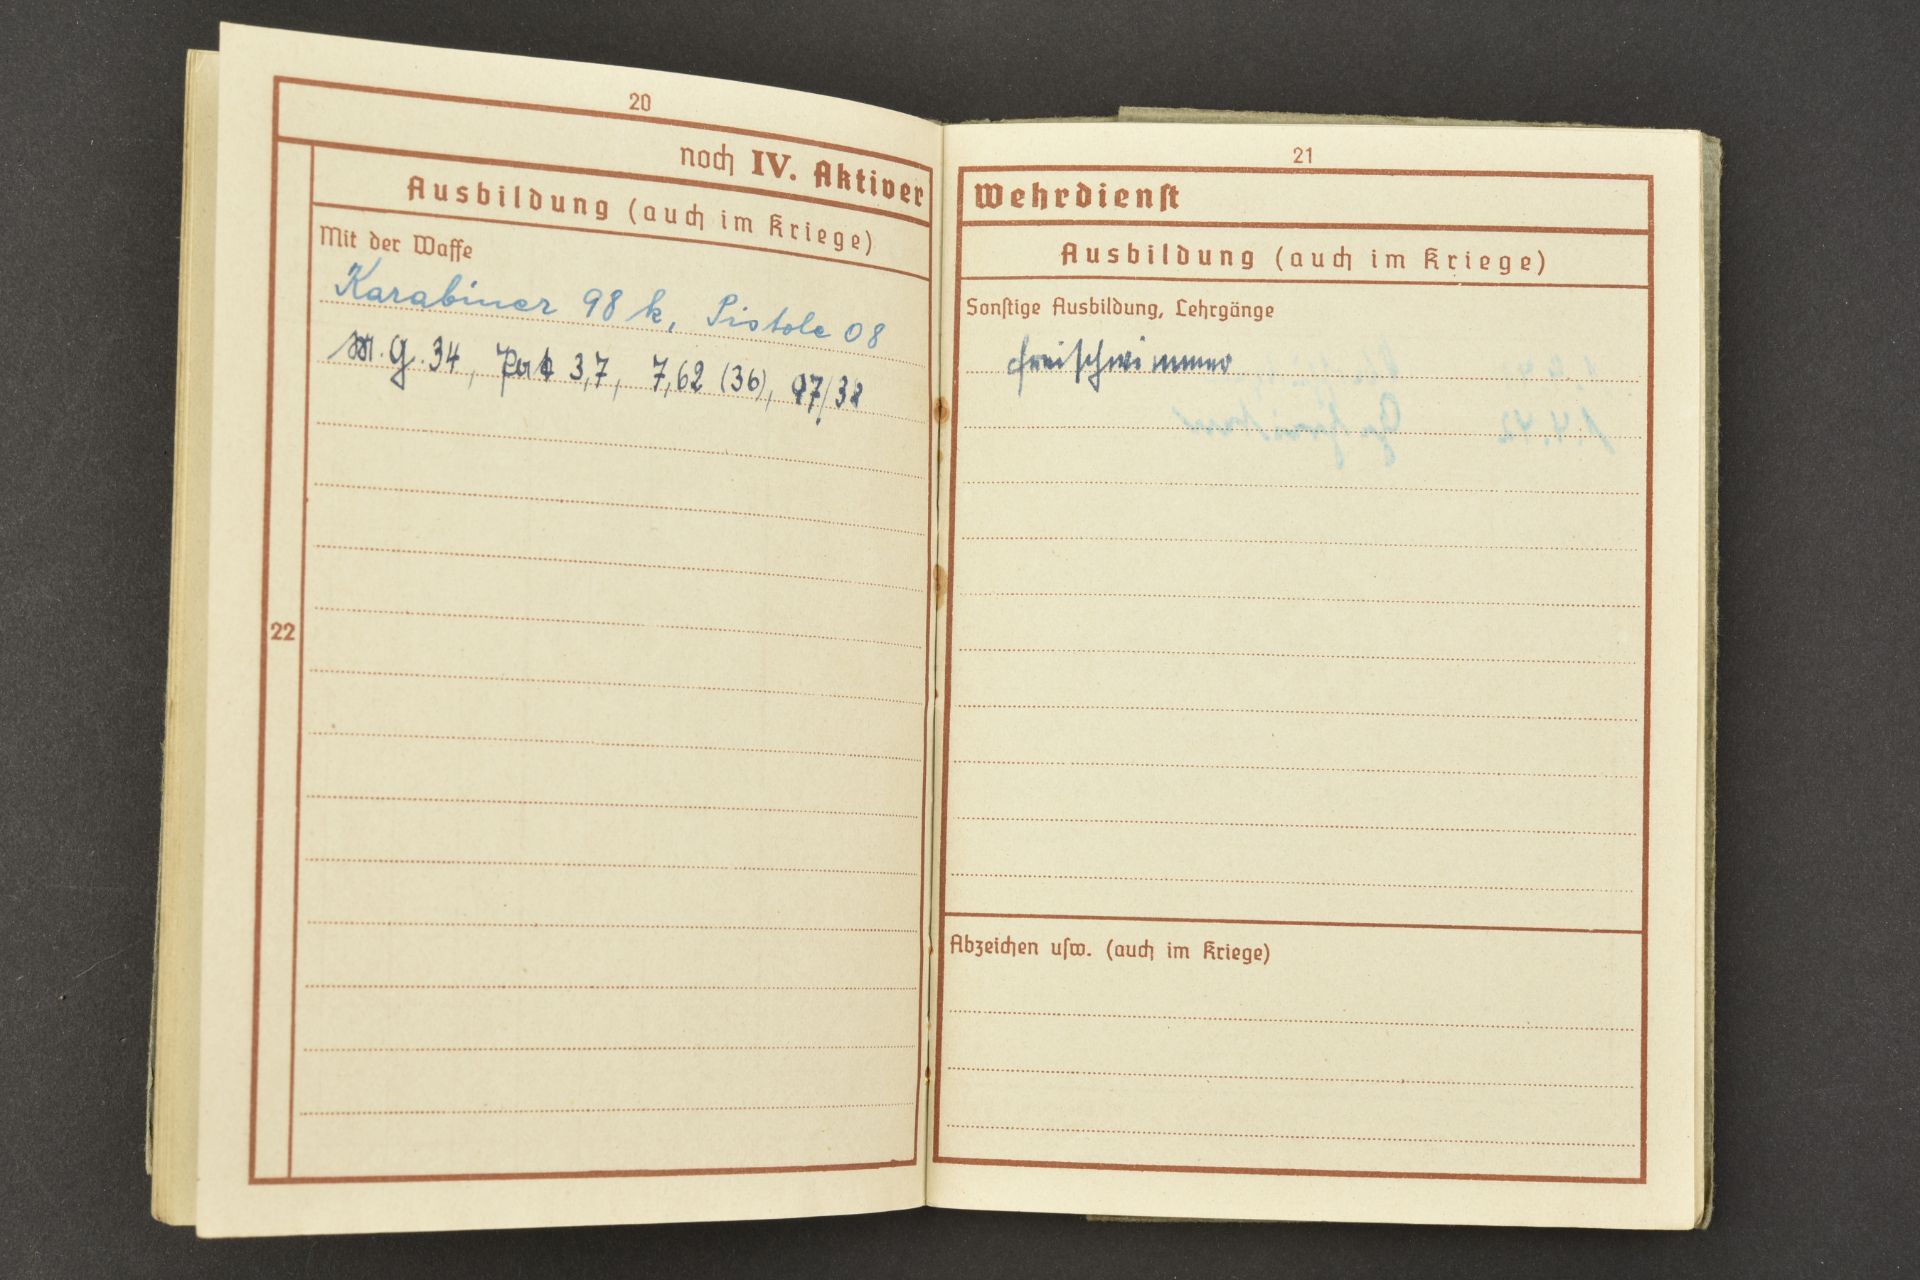 20
noch IV. Aktiver
Ausbildung (auch im Kriege)
Mit der Waffe
Karabiner 98 k, Pistole 08
M.G. 34, Pak 3,7, 7,62 (36), 97/38
22
21
Wehrdienst
Ausbildung (auch im Kriege)
Sonstige Ausbildung, Lehrgänge
Freischwimmer
1.4.42 Gefreiter
Abzeichen usw. (auch im Kriege)